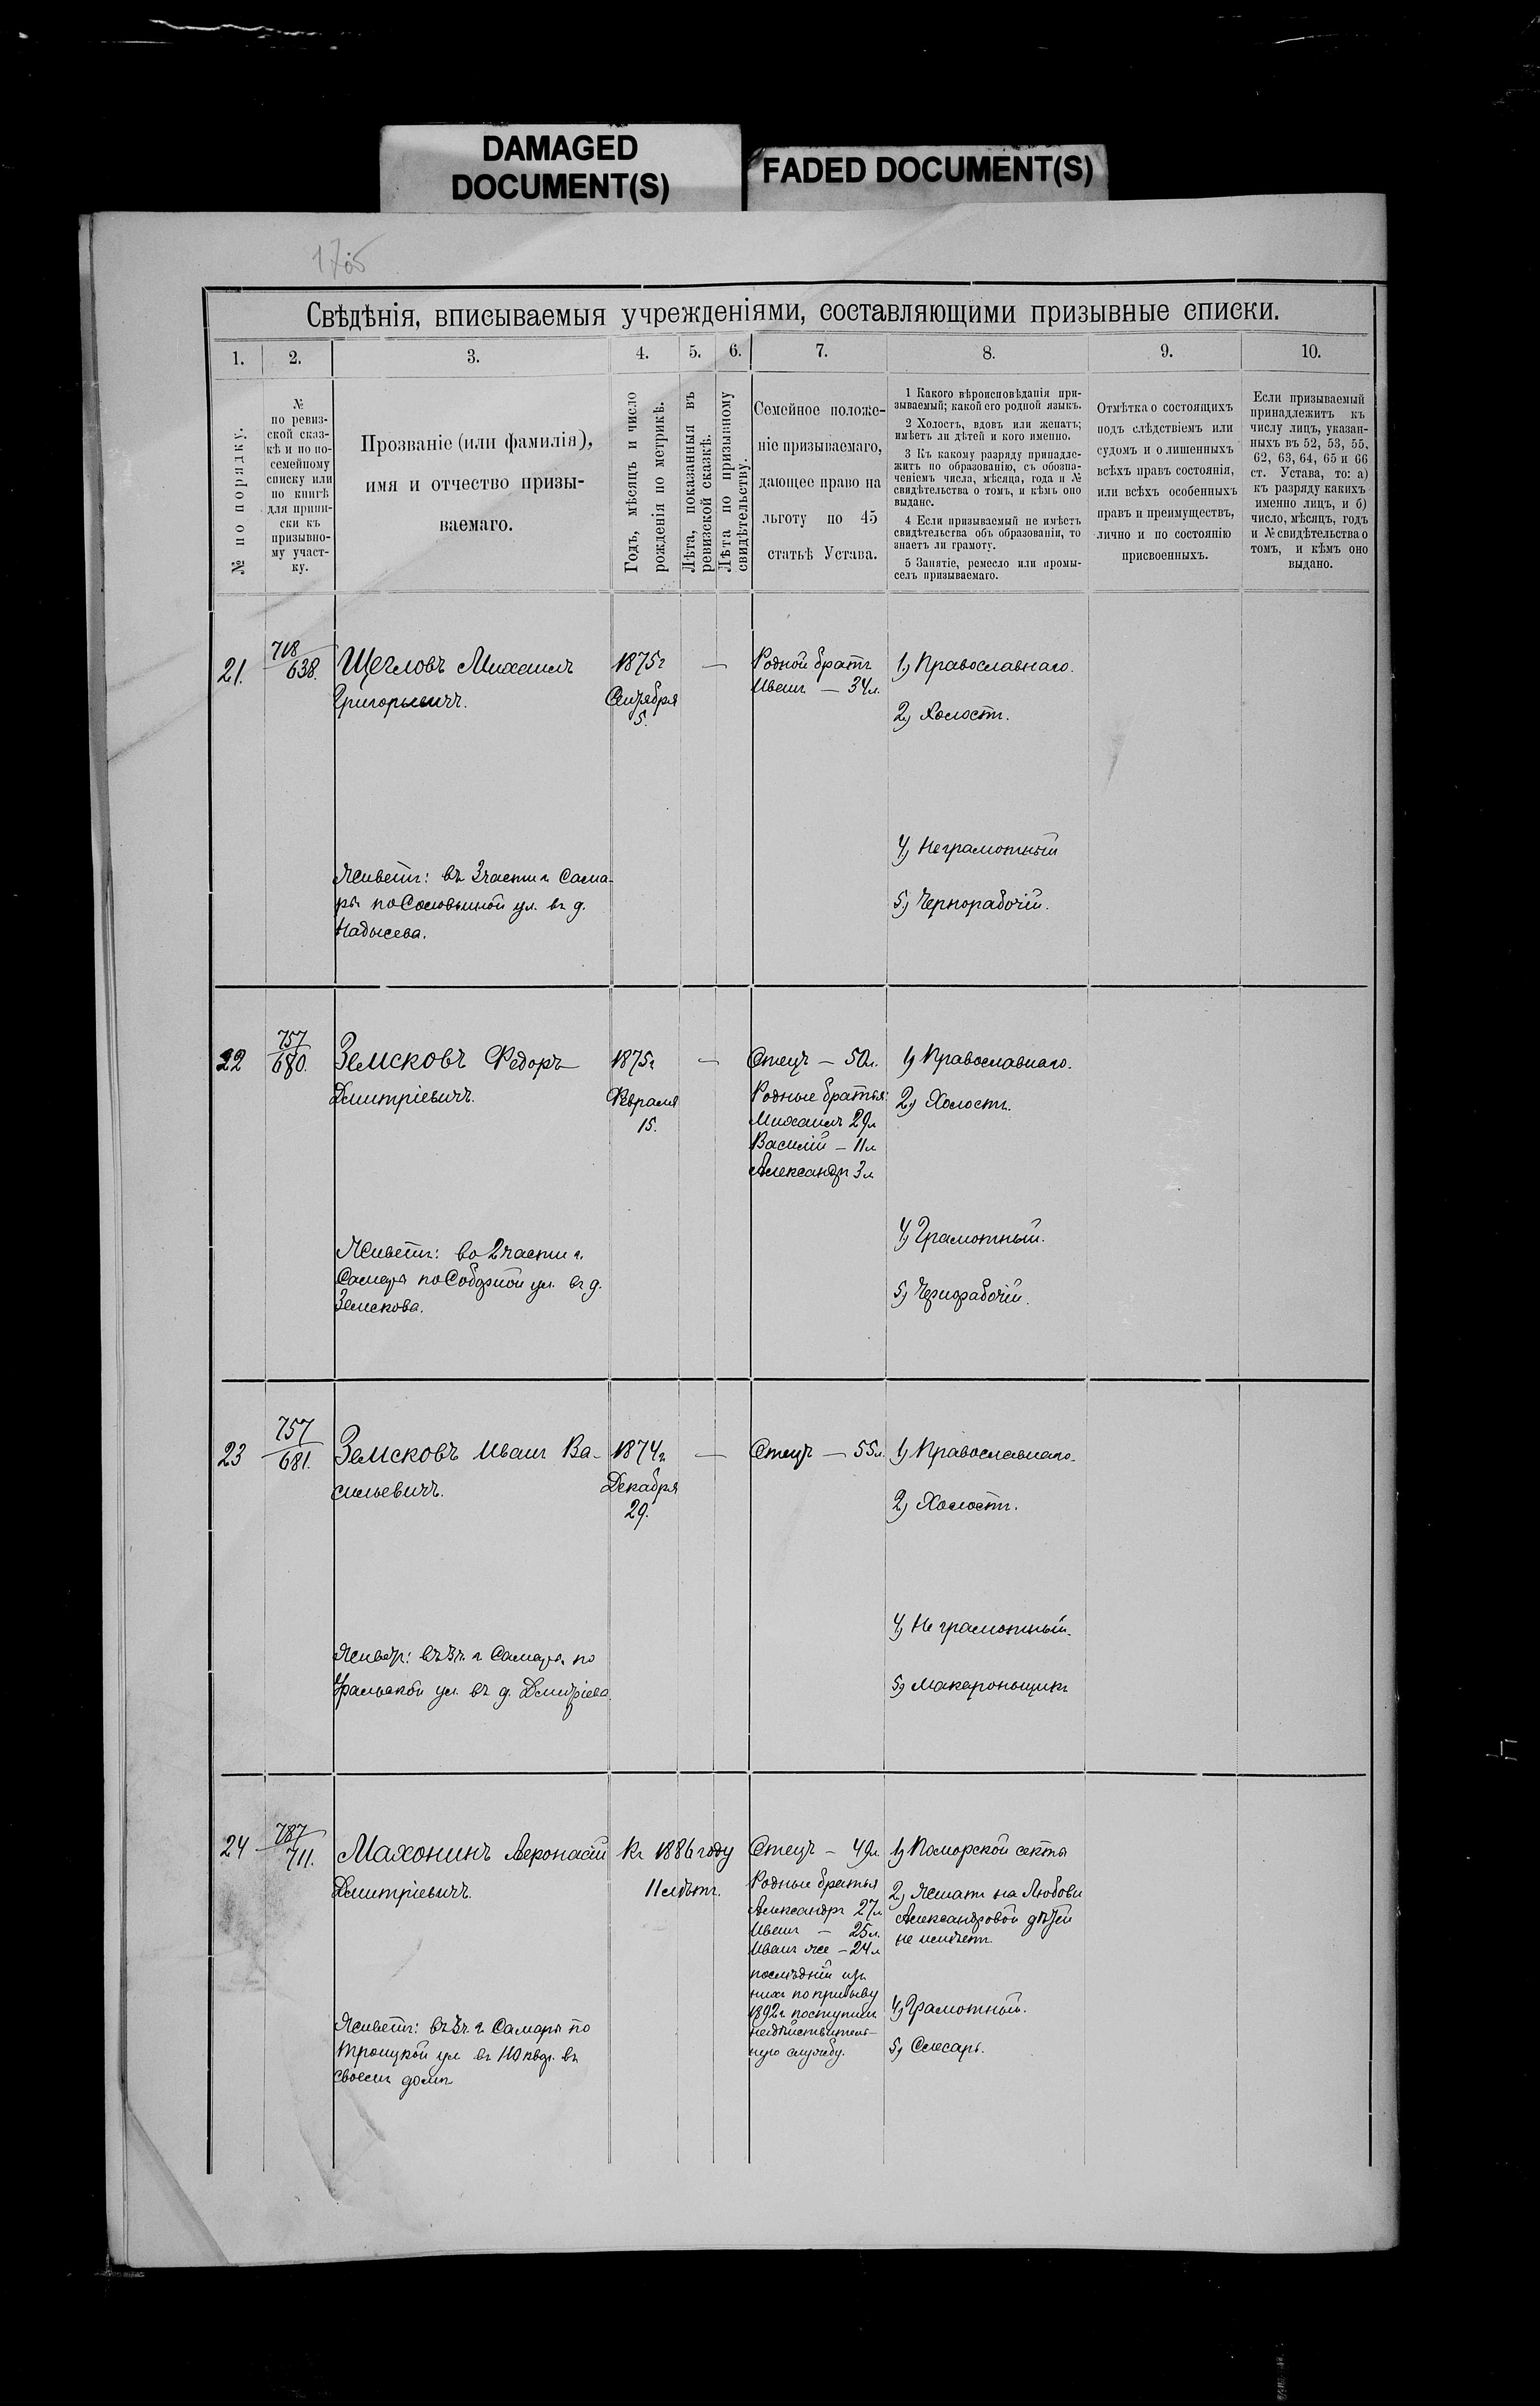 DAMAGED
DOCUMENT(S)
FADED DOCUMENT(S)
Свѣдѣнія, вписываемыя учрежденіями, составляющими призывные списки.
1.
2.
3.
4.
5.
6.
7.
8.
9.
10.
№ по порядку.
№
по ревиз-
ской сказ-
кѣ и по по-
семейному
списку или
по книгѣ
для припи-
ски къ
призывно-
му участ-
ку.
Прозваніе (или фамилія),
имя и отчество призы-
ваемаго.
Годъ, мѣсяцъ и число
рожденія по метрикѣ.
Лѣта, показанныя въ
ревизской сказкѣ.
Лѣта по призывному
свидѣтельству.
Семейное положе-
ніе призываемаго,
дающее право на
льготу по 45
статьѣ Устава.
1 Какого вѣроисповѣданія при-
зываемый; какой его родной языкъ.
2 Холостъ, вдовъ или женатъ;
имѣетъ ли дѣтей и кого именно.
3 Къ какому разряду принадле-
житъ по образованію, съ обозна-
ченіемъ числа, мѣсяца, года и №
свидѣтельства о томъ, и кѣмъ оно
выдано.
4 Если призываемый не имѣетъ
свидѣтельства объ образованіи, то
знаетъ ли грамоту.
5 Занятіе, ремесло или промы-
селъ призываемаго.
Отмѣтка о состоящихъ
подъ слѣдствіемъ или
судомъ и о лишенныхъ
всѣхъ правъ состоянія,
или всѣхъ особенныхъ
правъ и преимуществъ,
лично и по состоянію
присвоенныхъ.
Если призываемый
принадлежитъ къ
числу лицъ, указан-
ныхъ въ 52, 53, 55,
62, 63, 64, 65 и 66
ст. Устава, то: а)
къ разряду какихъ
именно лицъ, и б)
число, мѣсяцъ, годъ
и № свидѣтельства о
томъ, и кѣмъ оно
выдано.
21.
718
638.
Щегловъ Михаилъ
Григорьевичъ.
1875г
Сентября
5.
—
Родной братъ
Иванъ — 34л.
1) Православнаго.
2) Холостъ.
4) Неграмотный
5) Чернорабочій.
Живетъ: въ 3 части г. Сама-
ры по Соловьиной ул. въ д.
22
757
680.
Земсковъ Федоръ
Дмитріевичъ.
1875г
Февраля
15.
—
Отецъ — 50л.
Родные братья:
Михаилъ 29л
Василій — 11л
Александръ 3л
1) Православнаго.
2) Холостъ.
4) Грамотный.
5) Чернорабочій.
Живетъ: во 2 части г.
Самары по Соборной ул. въ д.
Земскова.
23
757
681.
Земсковъ Иванъ Ва-
сильевичъ.
1874г.
Декабря
29.
—
Отецъ — 55л.
1) Православнаго.
2) Холостъ.
4) Не грамотный.
5) Макаронщикъ
Живетъ: въ 3ч. г. Самары по
Уральской ул. въ д. Дмитріева.
24
787
711.
Махонинъ Аѳонасій
Дмитріевичъ.
Къ 1886 году
11 лѣтъ.
Отецъ — 49л.
Родные братья
Александръ 27л
Иванъ — 25л.
Иванъ же — 24л
послѣдній изъ
нихъ по призыву
1892г. поступилъ
на дѣйствитель-
ную службу.
1) Поморской секты
2) Женатъ на Любови
Александровой дѣтей
не имѣетъ.
4) Грамотный.
5) Слесарь.
Живетъ: въ 3ч. г. Самары по
Троицкой ул въ 110 квар. въ
своемъ домѣ